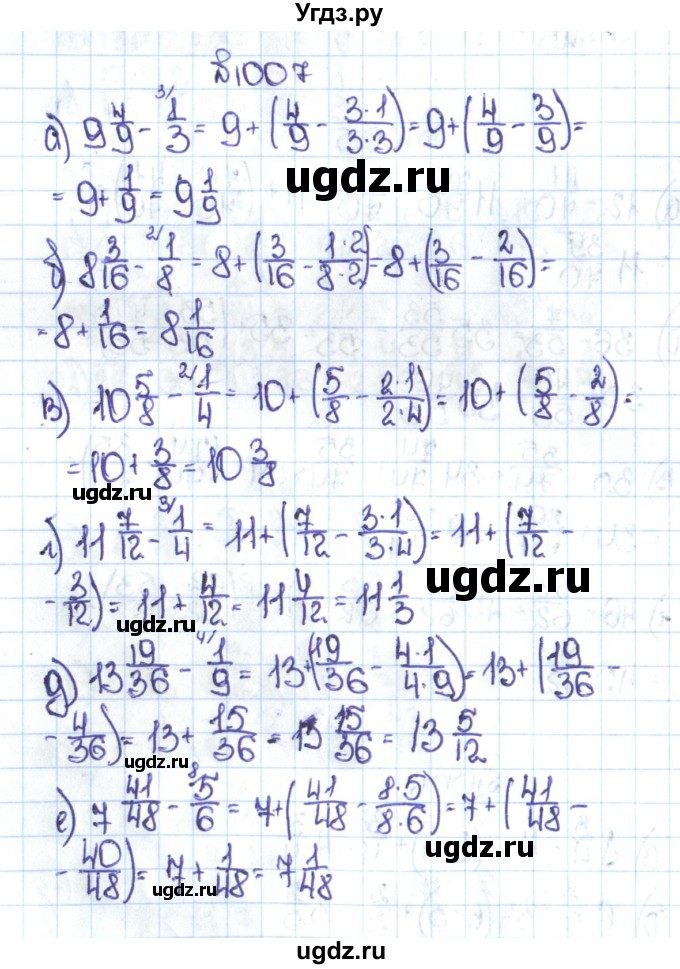 Угдз.ру
№1007
а) 9 4/9 - 3/ 1/3 = 9 + (4/9 - 3·1/3·3) = 9 + (4/9 - 3/9) =
ugdz.ru
= 9 + 1/9 = 9 1/9
б) 8 3/16 - 2/ 1/8 = 8 + (3/16 - 1·2/8·2) = 8 + (3/16 - 2/16) =
= 8 + 1/16 = 8 1/16
в) 10 5/8 - 2/ 1/4 = 10 + (5/8 - 2·1/2·4) = 10 + (5/8 - 2/8) =
= 10 + 3/8 = 10 3/8
ugdz.ru
г) 11 7/12 - 3/ 1/4 = 11 + (7/12 - 3·1/3·4) = 11 + (7/12 -
ugdz.ru
- 3/12) = 11 + 4/12 = 11 4/12 = 11 1/3
ugdz.ru
д) 13 19/36 - 4/ 1/9 = 13 + (19/36 - 4·1/4·9) = 13 + (19/36 -
- 4/36) = 13 + 15/36 = 13 15/36 = 13 5/12
ugdz.ru
е) 7 41/48 - 8/ 5/6 = 7 + (41/48 - 8·5/8·6) = 7 + (41/48 -
ugdz.ru
- 40/48) = 7 + 1/48 = 7 1/48
ugdz.ru
ugdz.ru